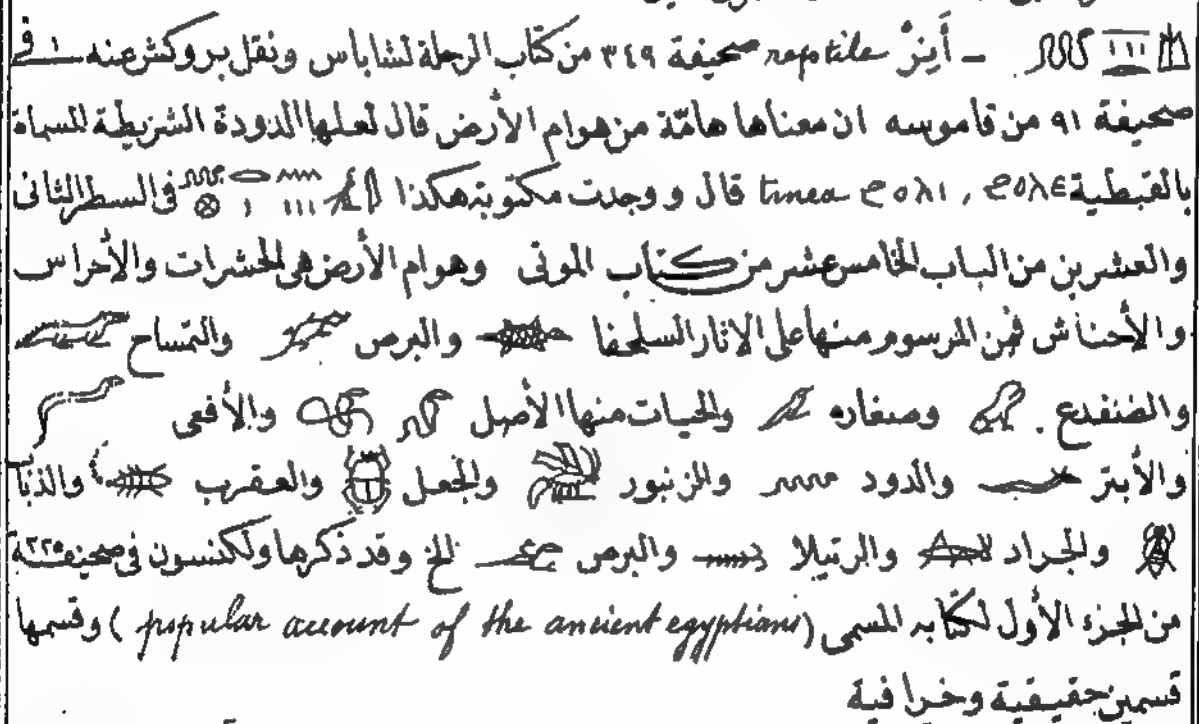 – أَيِنرُ reptile صحيفة ٣٤٩ من كتاب الرحلة لشاباس ونقل بروكش عنه فى
صحيفة ٩١ من قاموسه ان معناها هامّة من هوام الأرض قال لعلها الدودة الشريطة المسماة
بالقبطية ϩⲟⲗⲉ , ϩⲟⲗⲓ tinea قال ووجدت مكتوبة هكذا فى السطر الثانى
والعشرين من الباب الخامس عشر من كتاب الموتى وهوام الأرض هى الحشرات والأحراس
والأحناش فمن المرسوم منها على الاثار السلحفا والبرص والتمساح
والضفدع . وصغاره والحيات منها الأصل والأفعى
والأبتر والدود والزنبور والجعل والعقرب والذباب
والجراد والرتيلا والبرص الخ وقد ذكرها ولكنسون فى صحيفة ٢٣٥
من الجزء الأول لكتابه المسمى (popular account of the ancient egyptians) وقسمها
قسمين حقيقية وخرافية